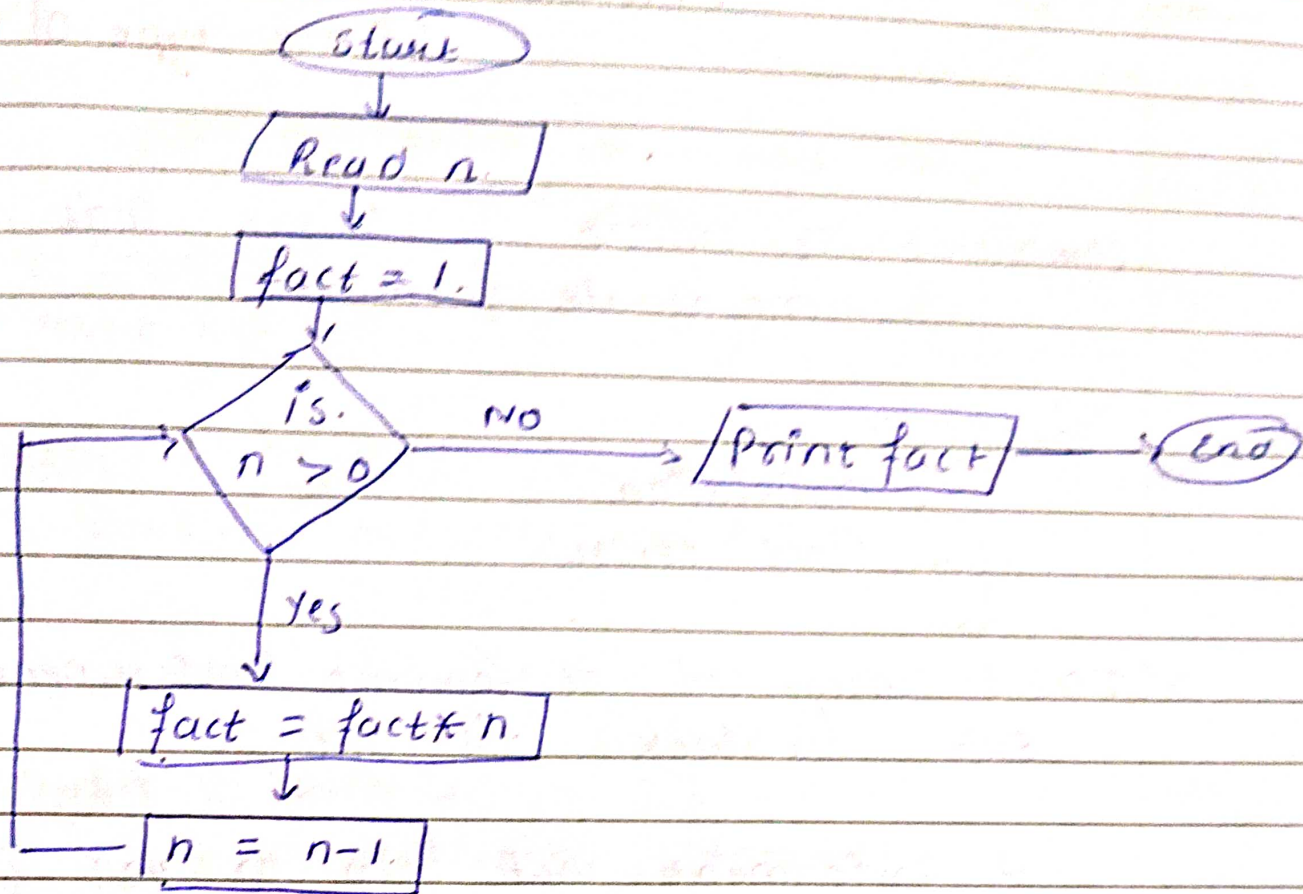 Start
Read n
fact = 1.
is.
n > 0
NO
Print fact
End
Yes
fact = fact * n.
n = n-1.